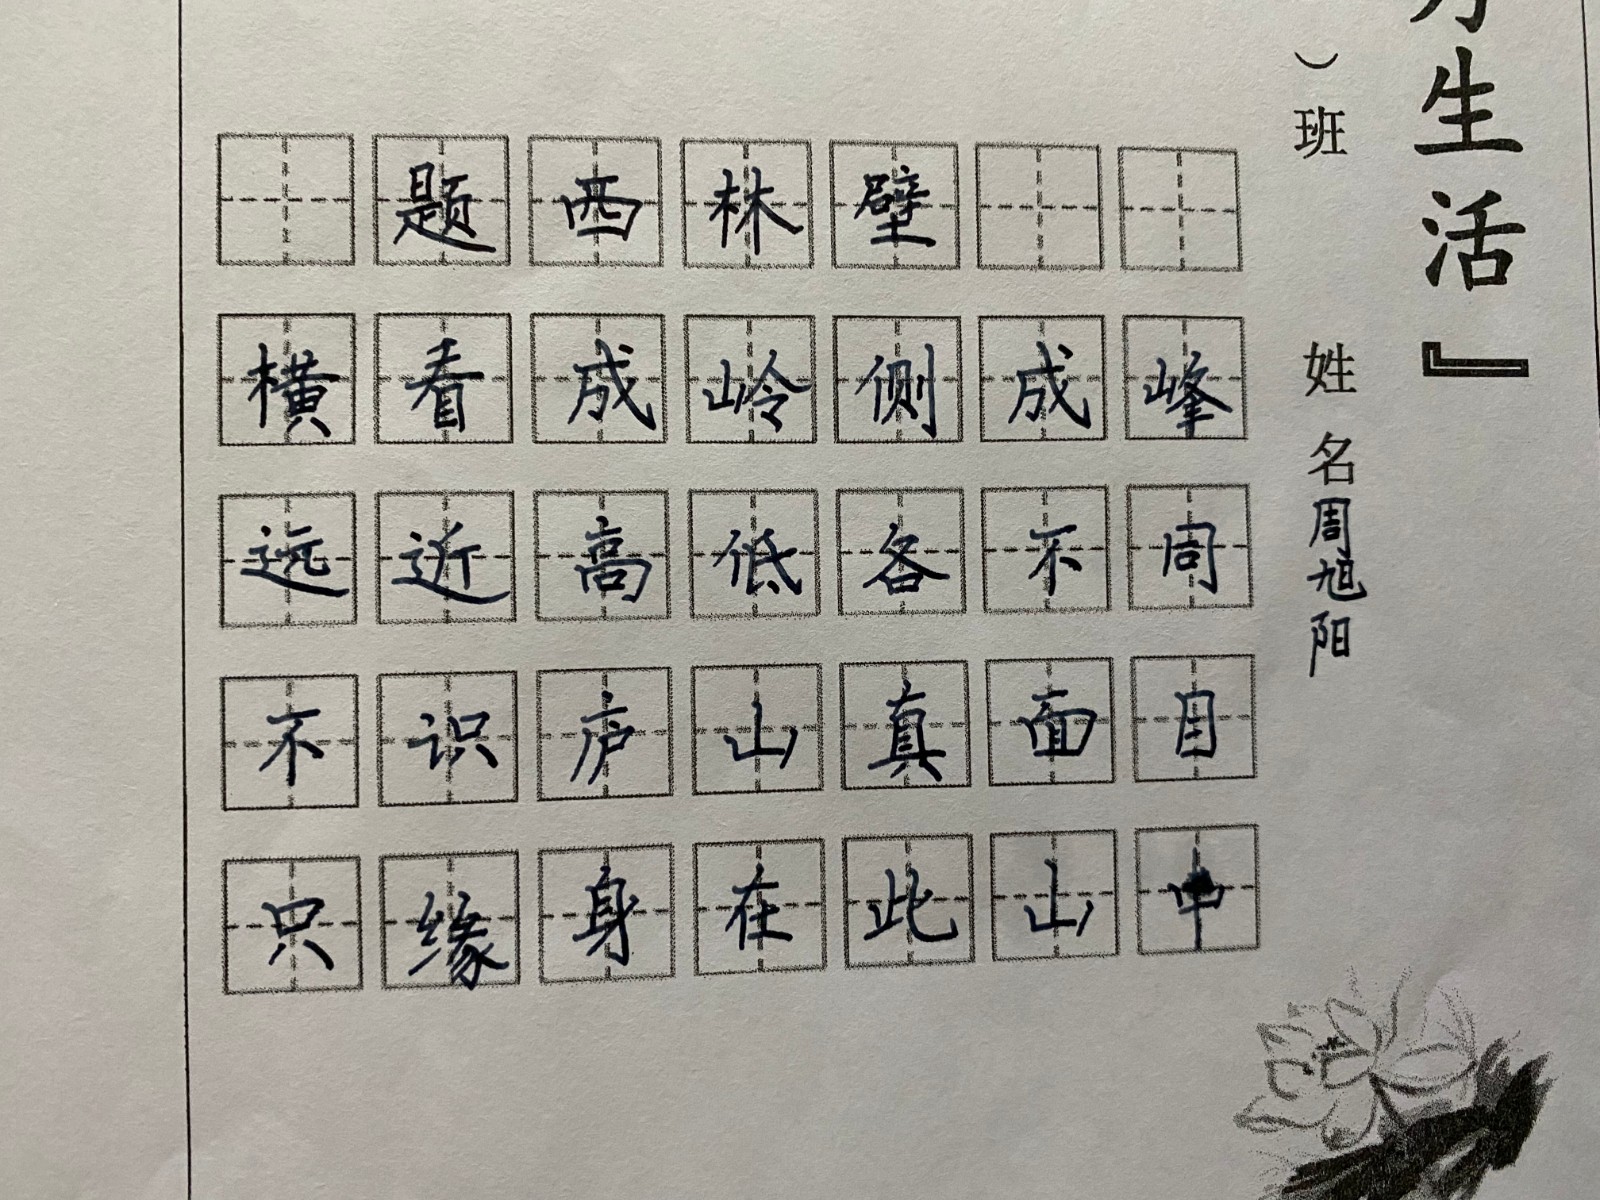 题西林壁
横看成岭侧成峰
远近高低各不同
不识庐山真面目
只缘身在此山中
生活』
）班 姓名周旭阳